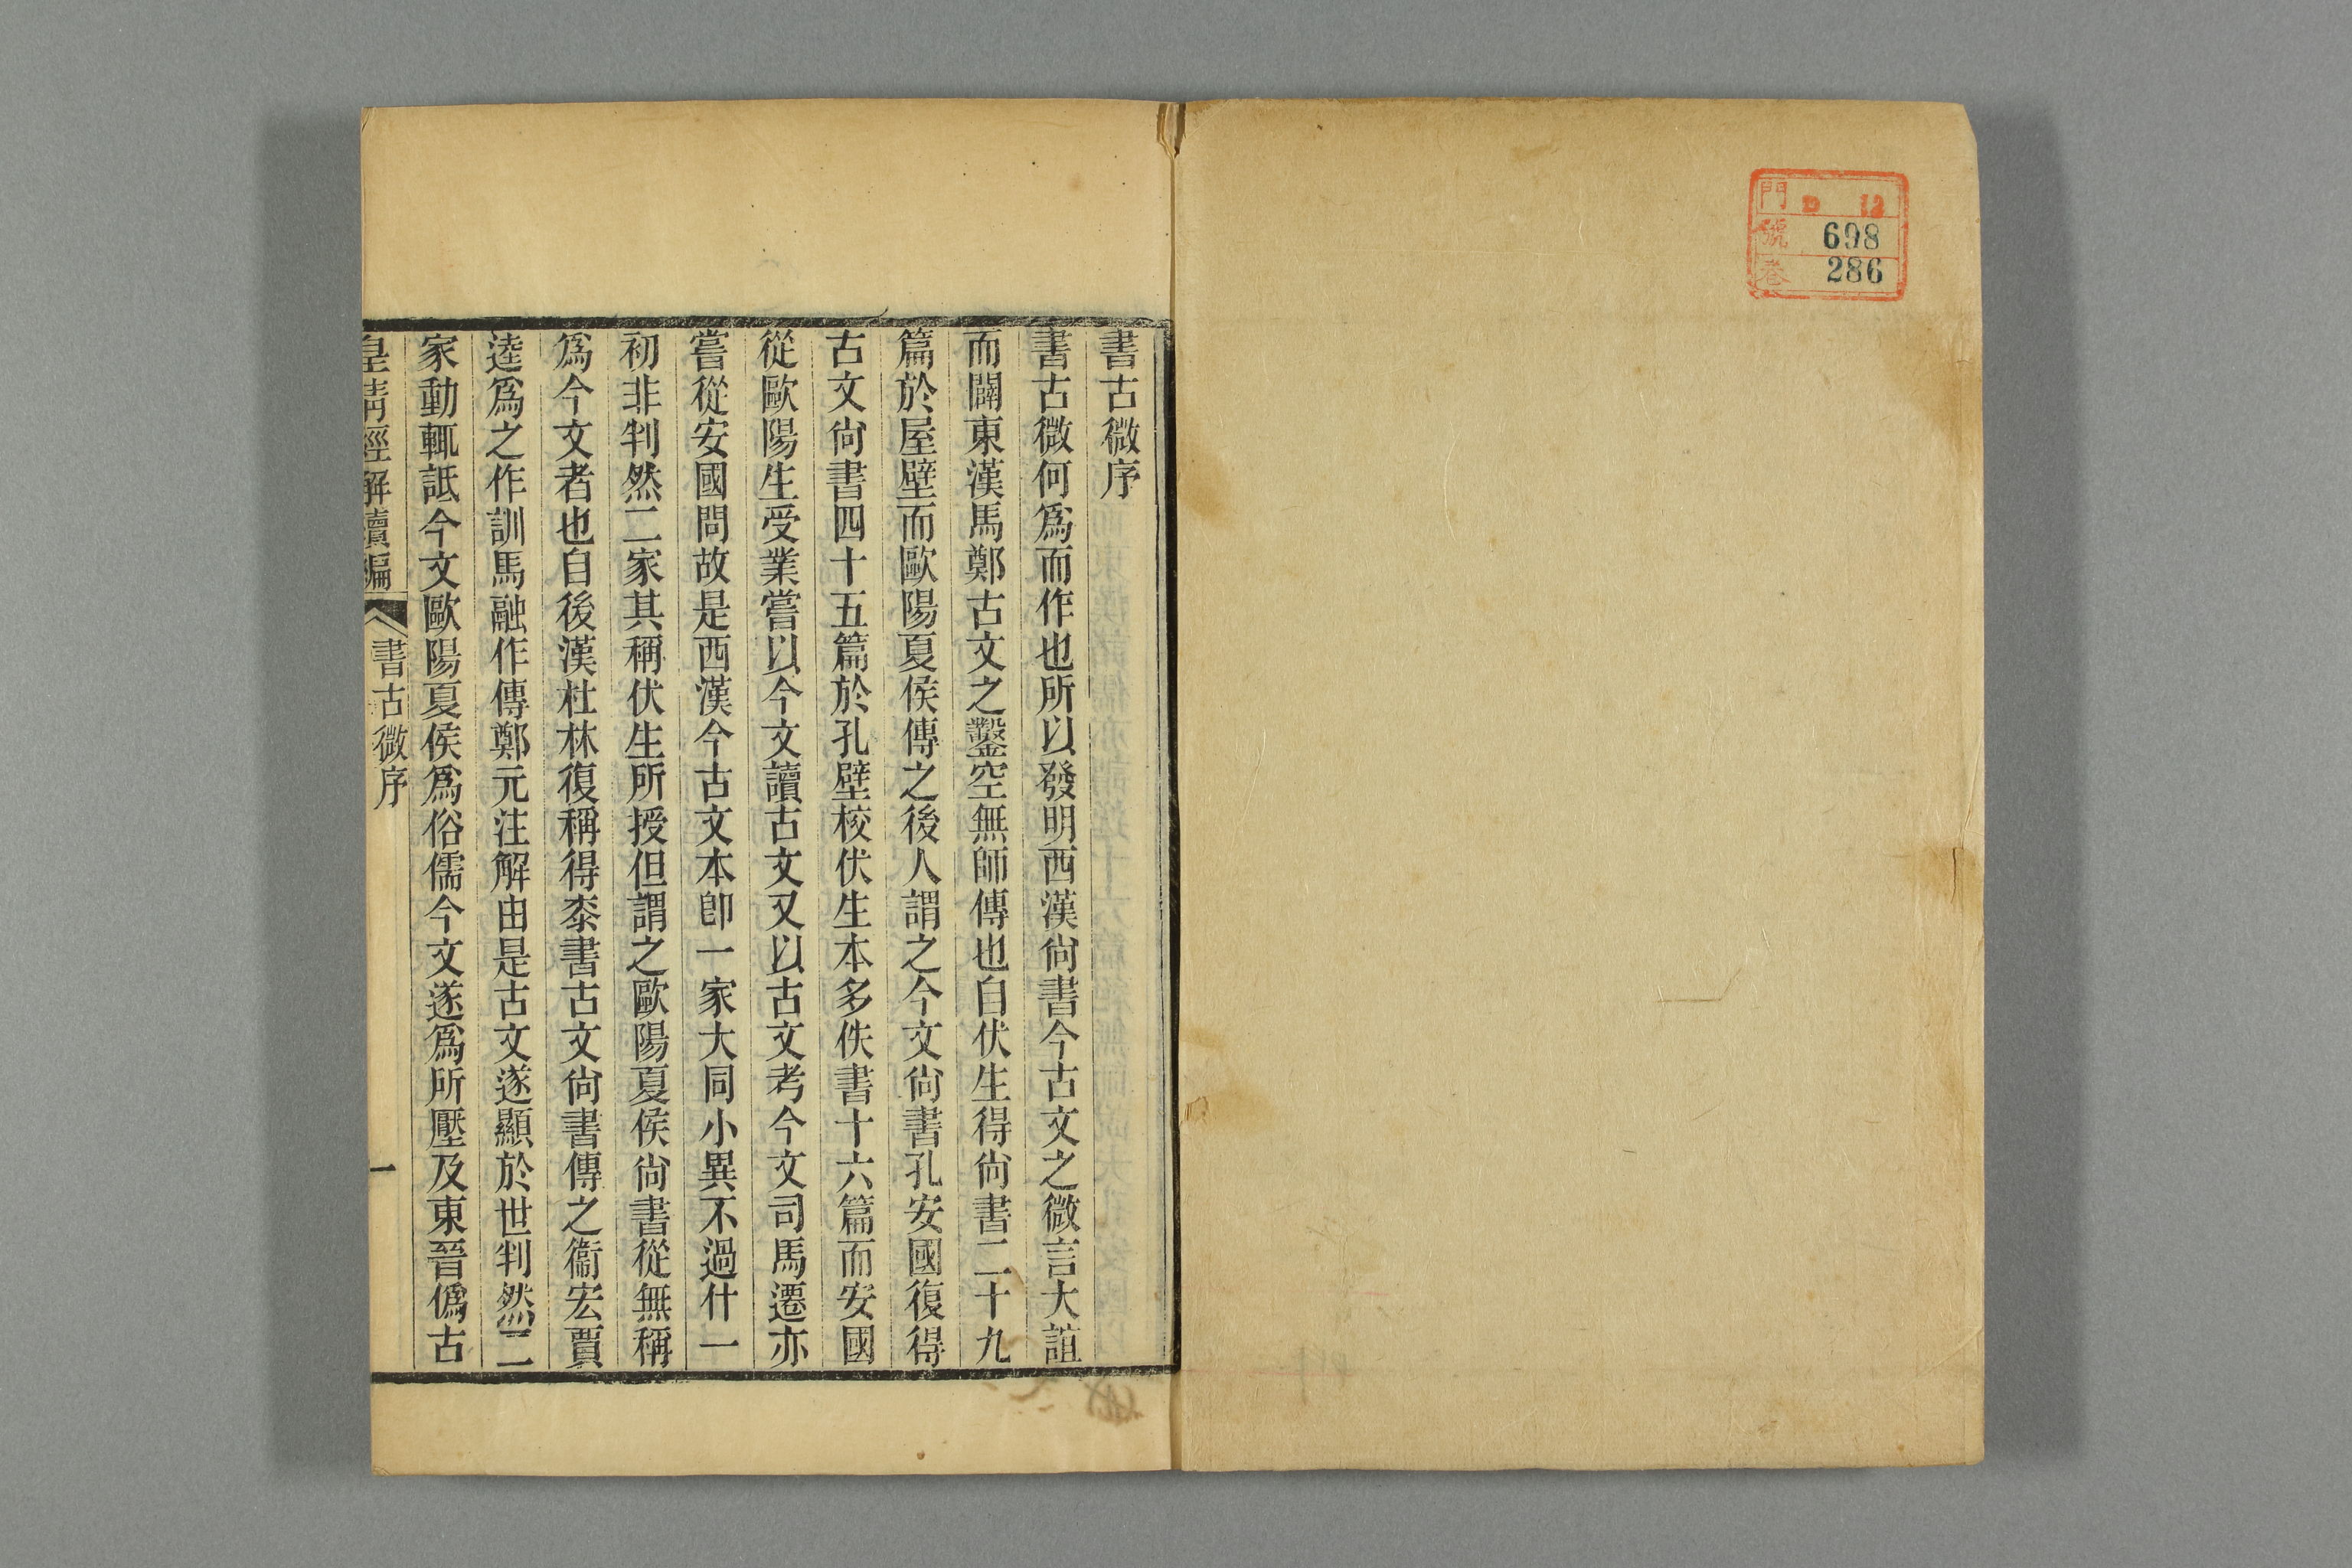 門 D 12
號 698
卷 286
書古微序
書古微何爲而作也所以發明西漢尙書今古文之微言大誼
而闢東漢馬鄭古文之鑿空無師傳也自伏生得尙書二十九
篇於屋壁而歐陽夏侯傳之後人謂之今文尙書孔安國復得
古文尙書四十五篇於孔壁校伏生本多佚書十六篇而安國
從歐陽生受業嘗以今文讀古文又以古文考今文司馬遷亦
嘗從安國問故是西漢今古文本卽一家大同小異不過什一
初非判然二家其稱伏生所授但謂之歐陽夏侯尙書從無稱
爲今文者也自後漢杜林復稱得桼書古文尙書傳之衞宏賈
逵爲之作訓馬融作傳鄭元注解由是古文遂顯於世判然二
家動輒詆今文歐陽夏侯爲俗儒今文遂爲所壓及東晉僞古
皇淸經解續編 書古微序 一